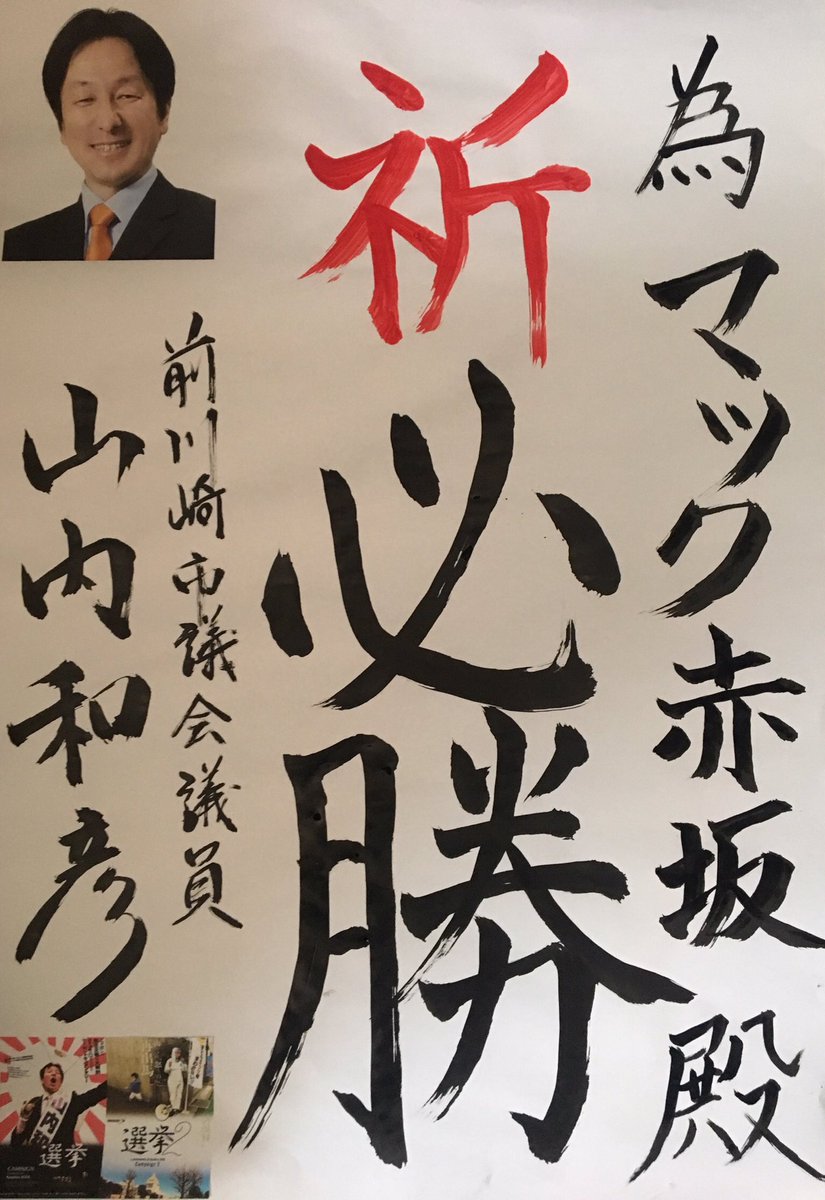 為マック赤坂殿
祈
必勝
前川崎市議会議員
山内和彦
選挙
CAMPAIGN
山内和
選挙
Campaign 2